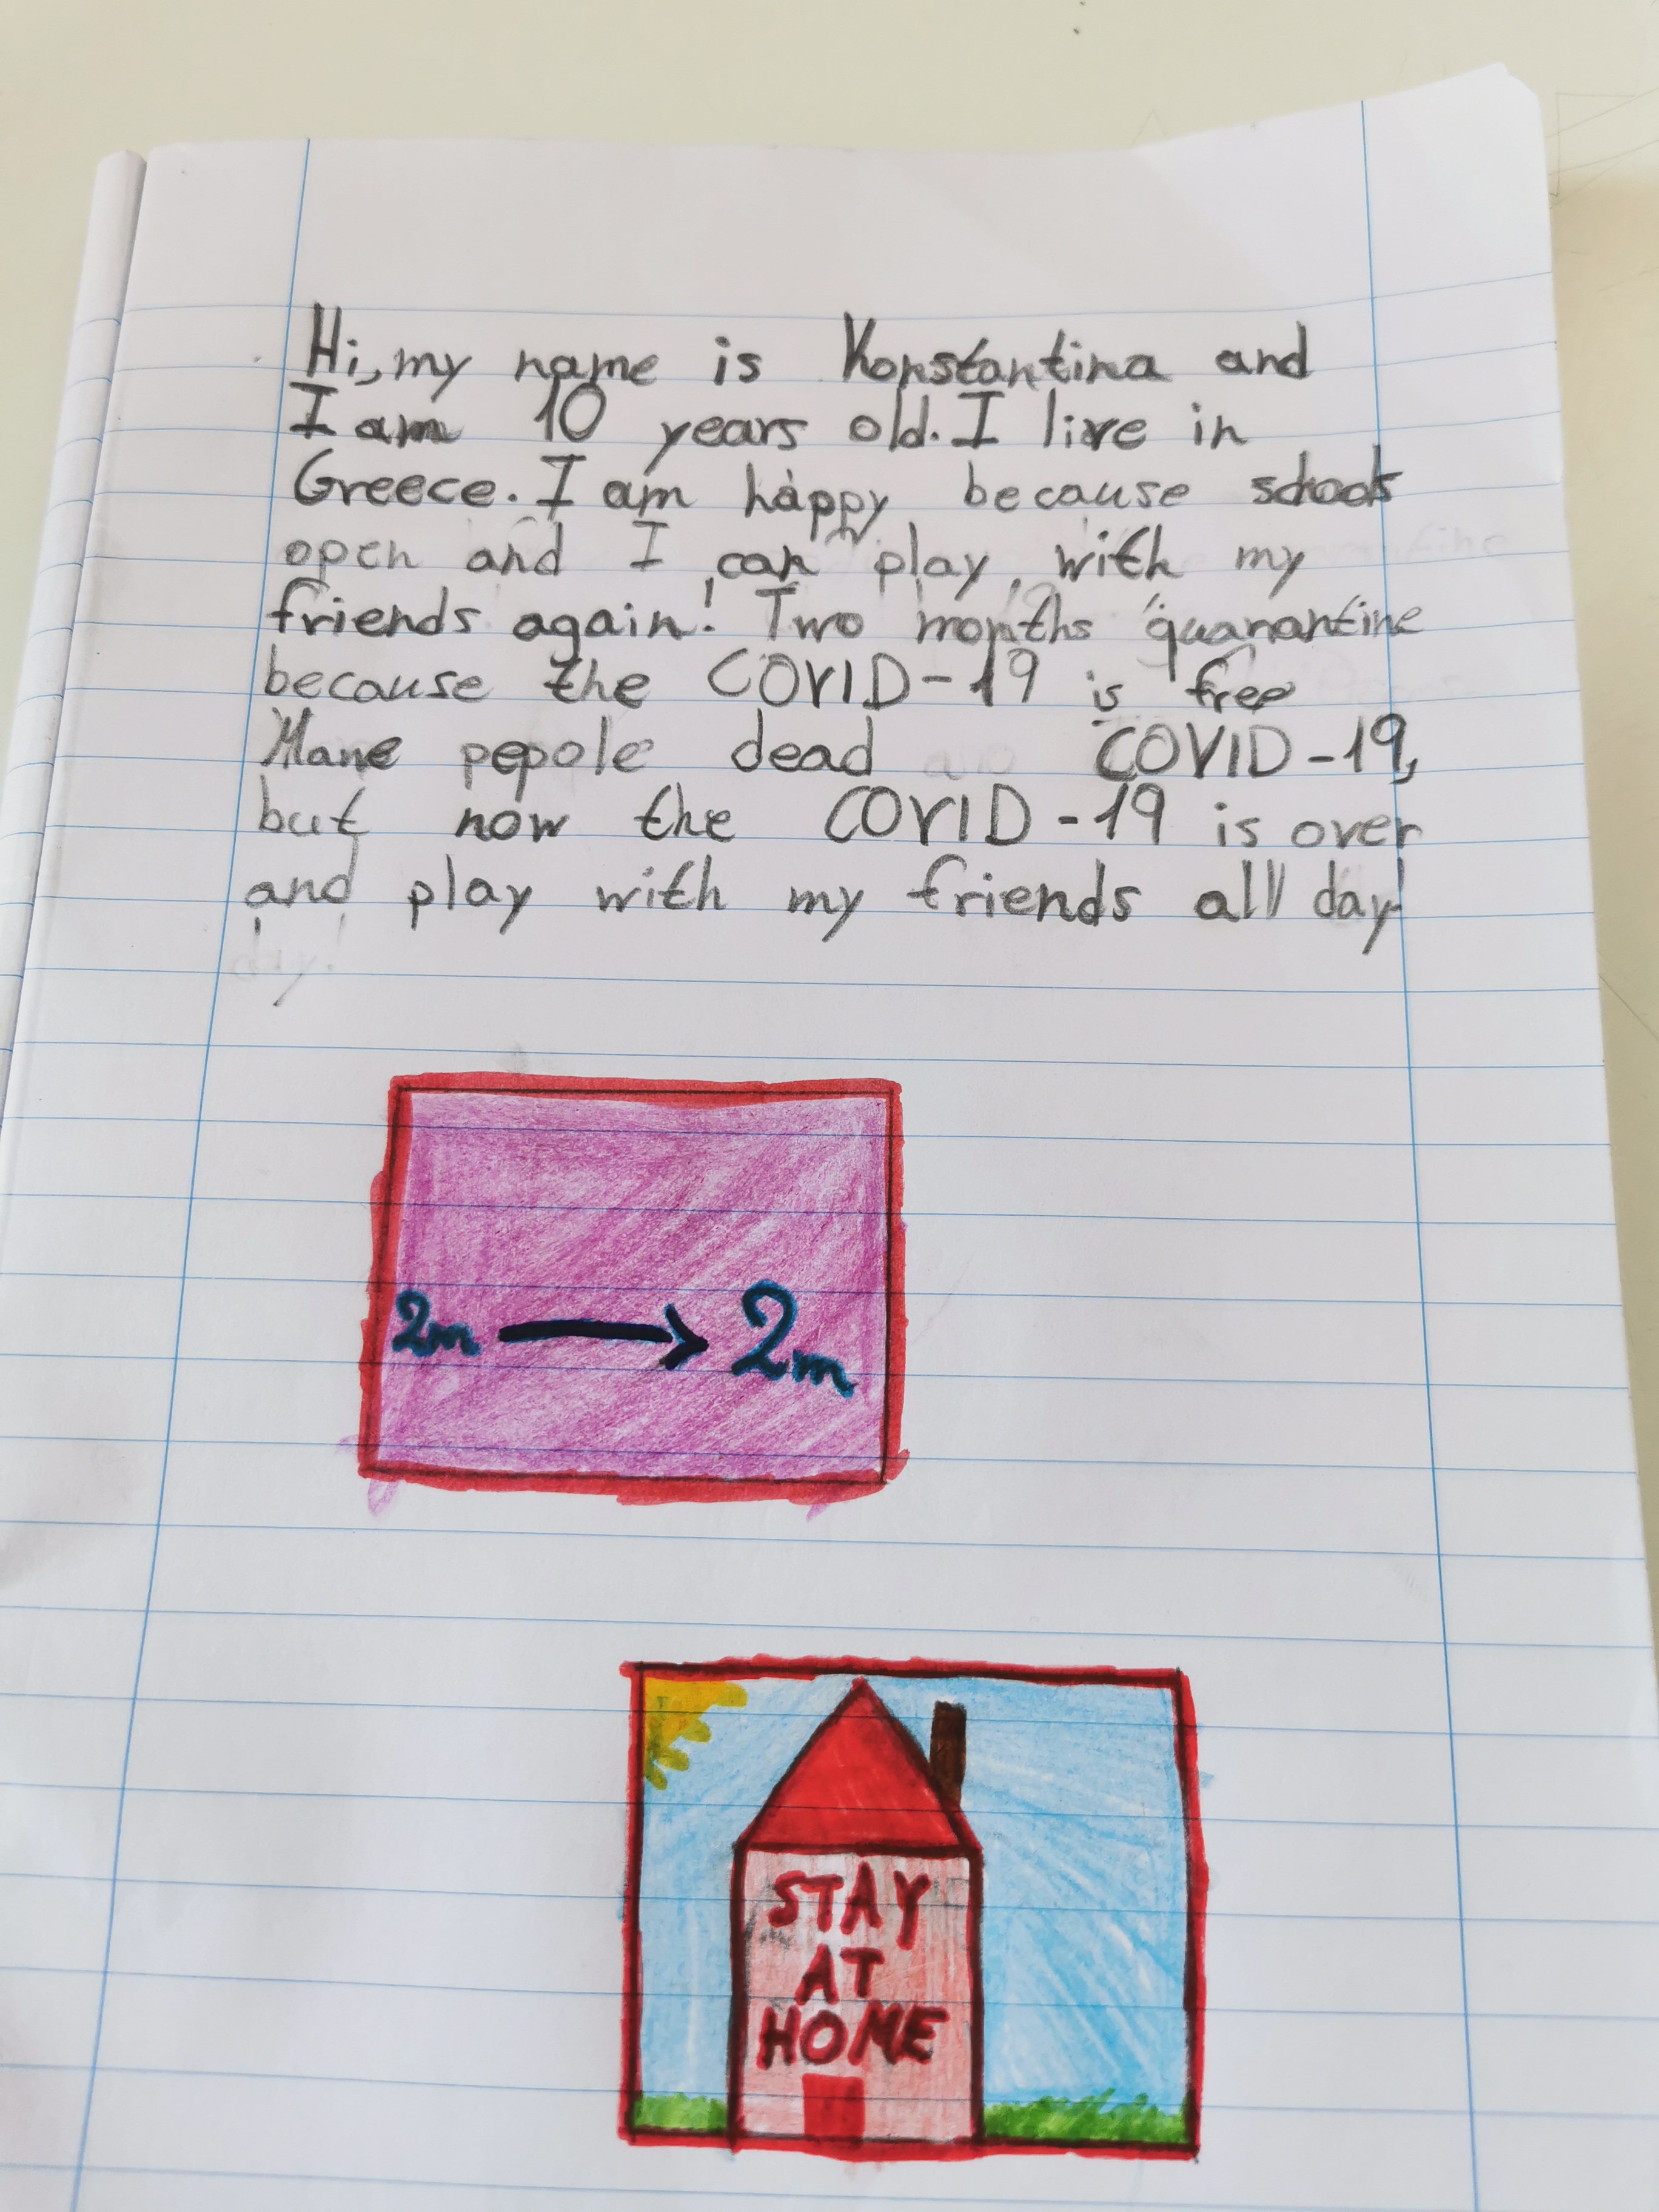 Hi, my name is Konstantina and
I am 10 years old. I live in
Greece. I am happy because schools
open and I can play with my
friends again! Two months quarantine
because the COVID-19 is free
Mane pepole dead COVID-19,
but now the COVID-19 is over
and play with my friends all day!
day!
2m → 2m
STAY
AT
HOME